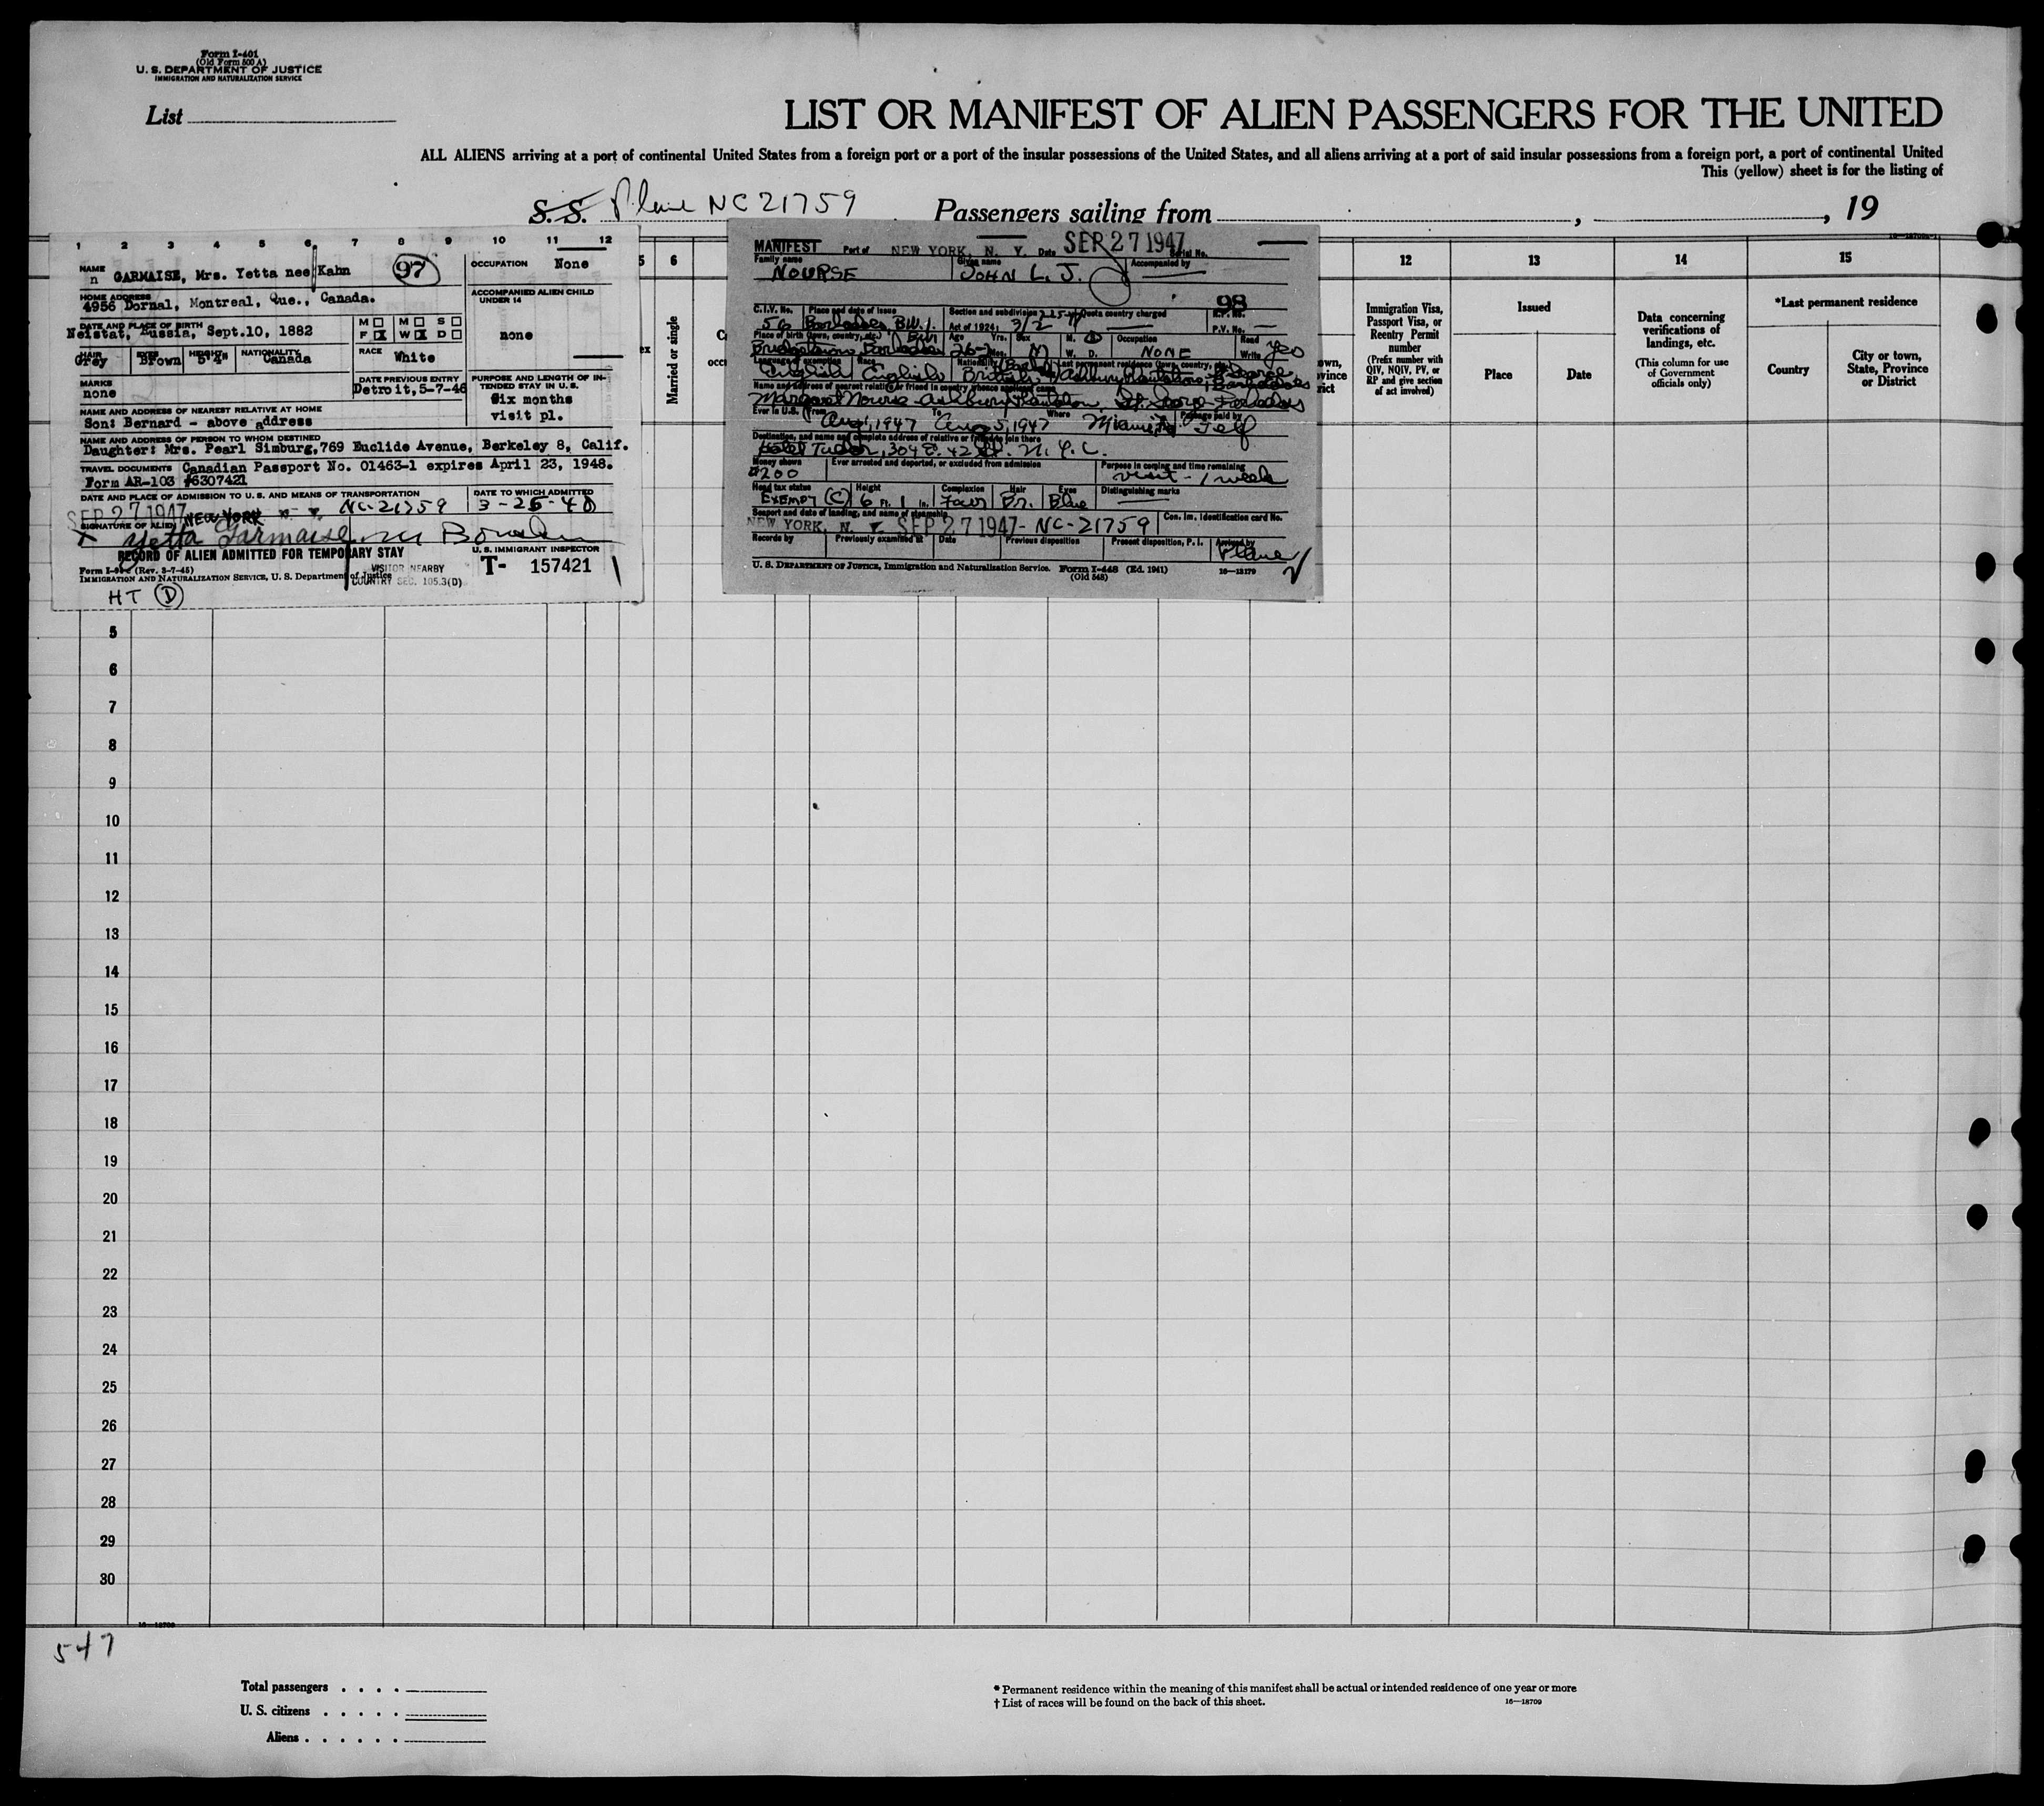 Form I-401
(Old Form 500 A)
U. S. DEPARTMENT OF JUSTICE
IMMIGRATION AND NATURALIZATION SERVICE
List
LIST OR MANIFEST OF ALIEN PASSENGERS FOR THE UNITED
ALL ALIENS arriving at a port of continental United States from a foreign port or a port of the insular possessions of the United States, and all aliens arriving at a port of said insular possessions from a foreign port, a port of continental United
This (yellow) sheet is for the listing of
S. S. Plane NC 21759 Passengers sailing from , , 19
1 2 3 4 5 6 7 8 9 10 11 12
NAME GARMAISE, Mrs. Yetta nee Kahn 97
OCCUPATION None
HOME ADDRESS
4956 Dornal, Montreal, Que., Canada.
ACCOMPANIED ALIEN CHILD UNDER 14
none
DATE AND PLACE OF BIRTH
Neistat, Russia, Sept.10, 1882
M M S
F X W X D
HAIR EYES HEIGHT NATIONALITY RACE
Grey Brown 5'4" Canada White
MARKS
none
DATE PREVIOUS ENTRY
Detroit, 5-7-46
PURPOSE AND LENGTH OF INTENDED STAY IN U. S.
Six months
visit pl.
NAME AND ADDRESS OF NEAREST RELATIVE AT HOME
Son: Bernard - above address
NAME AND ADDRESS OF PERSON TO WHOM DESTINED
Daughter: Mrs. Pearl Simburg, 769 Euclide Avenue, Berkeley 8, Calif.
TRAVEL DOCUMENTS Canadian Passport No. 01463-1 expires April 23, 1948.
Form AR-103 #6307421
DATE AND PLACE OF ADMISSION TO U. S. AND MEANS OF TRANSPORTATION
SEP 27 1947 NEW YORK N. Y. NC-21759
DATE TO WHICH ADMITTED
3-25-48
SIGNATURE OF ALIEN
X Yetta Garmaise
RECORD OF ALIEN ADMITTED FOR TEMPORARY STAY
U. S. IMMIGRANT INSPECTOR
(Rev. 3-7-45)
IMMIGRATION AND NATURALIZATION SERVICE, U. S. Department of Justice
VISITOR NEARBY
COUNTRY SEC. 105.3(D)
T- 157421
HT D
MANIFEST Port of NEW YORK, N. Y. Date SEP 27 1947 Serial No.
Family name Given name Accompanied by
NOURSE JOHN L. J.
98
C.I.V. No. Place and date of issue Section and subdivision Quota country charged R.P. No.
56 Barbados, B.W.I. Act of 1924: 3/2 P.V. No.
Place of birth (town, country, etc.) Age Yrs. Mos. Sex M. S W. D. Occupation Read Write
Bridgetown, Barbados 26 M NONE Yes
Language or exemption Race Nationality Last permanent residence (town, country, etc.)
English English British
Name and address of nearest relative or friend in country whence applicant came
Margaret Nourse Ashbury Plantation St. George Barbados
Ever in U.S. From To Where Passage paid by
Aug 1, 1947 Aug 5, 1947 Miami Self
Destination, and name and complete address of relative or friend to join there
Hotel Tudor, 304 E. 42 St. N. Y. C.
Money shown Ever arrested and deported, or excluded from admission Purpose in coming and time remaining
$200 visit - 1 week
Head tax status Height Complexion Hair Eyes Distinguishing marks
Exempt (C) 6 Ft. 1 In. Fair Br. Blue
Seaport and date of landing, and name of steamship Con. Im. Identification card No.
NEW YORK, N. Y. SEP 27 1947 - NC-21759
Records by Previously examined at Date Previous disposition Present disposition, P. I. Arrived by
Plane
U. S. DEPARTMENT OF JUSTICE, Immigration and Naturalization Service. Form I-448 (Ed. 1941)
(Old 548)
16—13179
5 6 12 13 14 15
Married or single
Immigration Visa, Passport Visa, or Reentry Permit number
(Prefix number with QIV, NQIV, PV, or RP and give section of act involved)
Issued
Place Date
Data concerning verifications of landings, etc.
(This column for use of Government officials only)
*Last permanent residence
Country City or town, State, Province or District
5
6
7
8
9
10
11
12
13
14
15
16
17
18
19
20
21
22
23
24
25
26
27
28
29
30
547
Total passengers
U. S. citizens
Aliens
* Permanent residence within the meaning of this manifest shall be actual or intended residence of one year or more
† List of races will be found on the back of this sheet.
16—18709